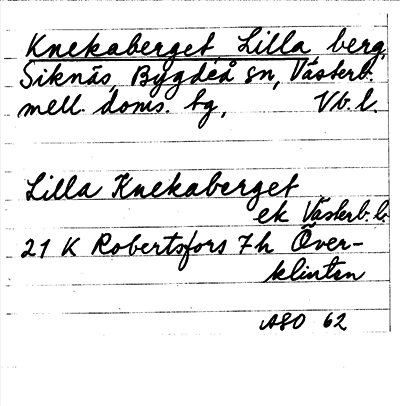 Knekaberget, Lilla berg
Siknäs, Bygdeå sn, Västerb.
mell. doms. tg, Vb. l.
Lilla Knekaberget
ek Västerb. l.
21 K Robertsfors 7h Över-
klinten
ASO 62